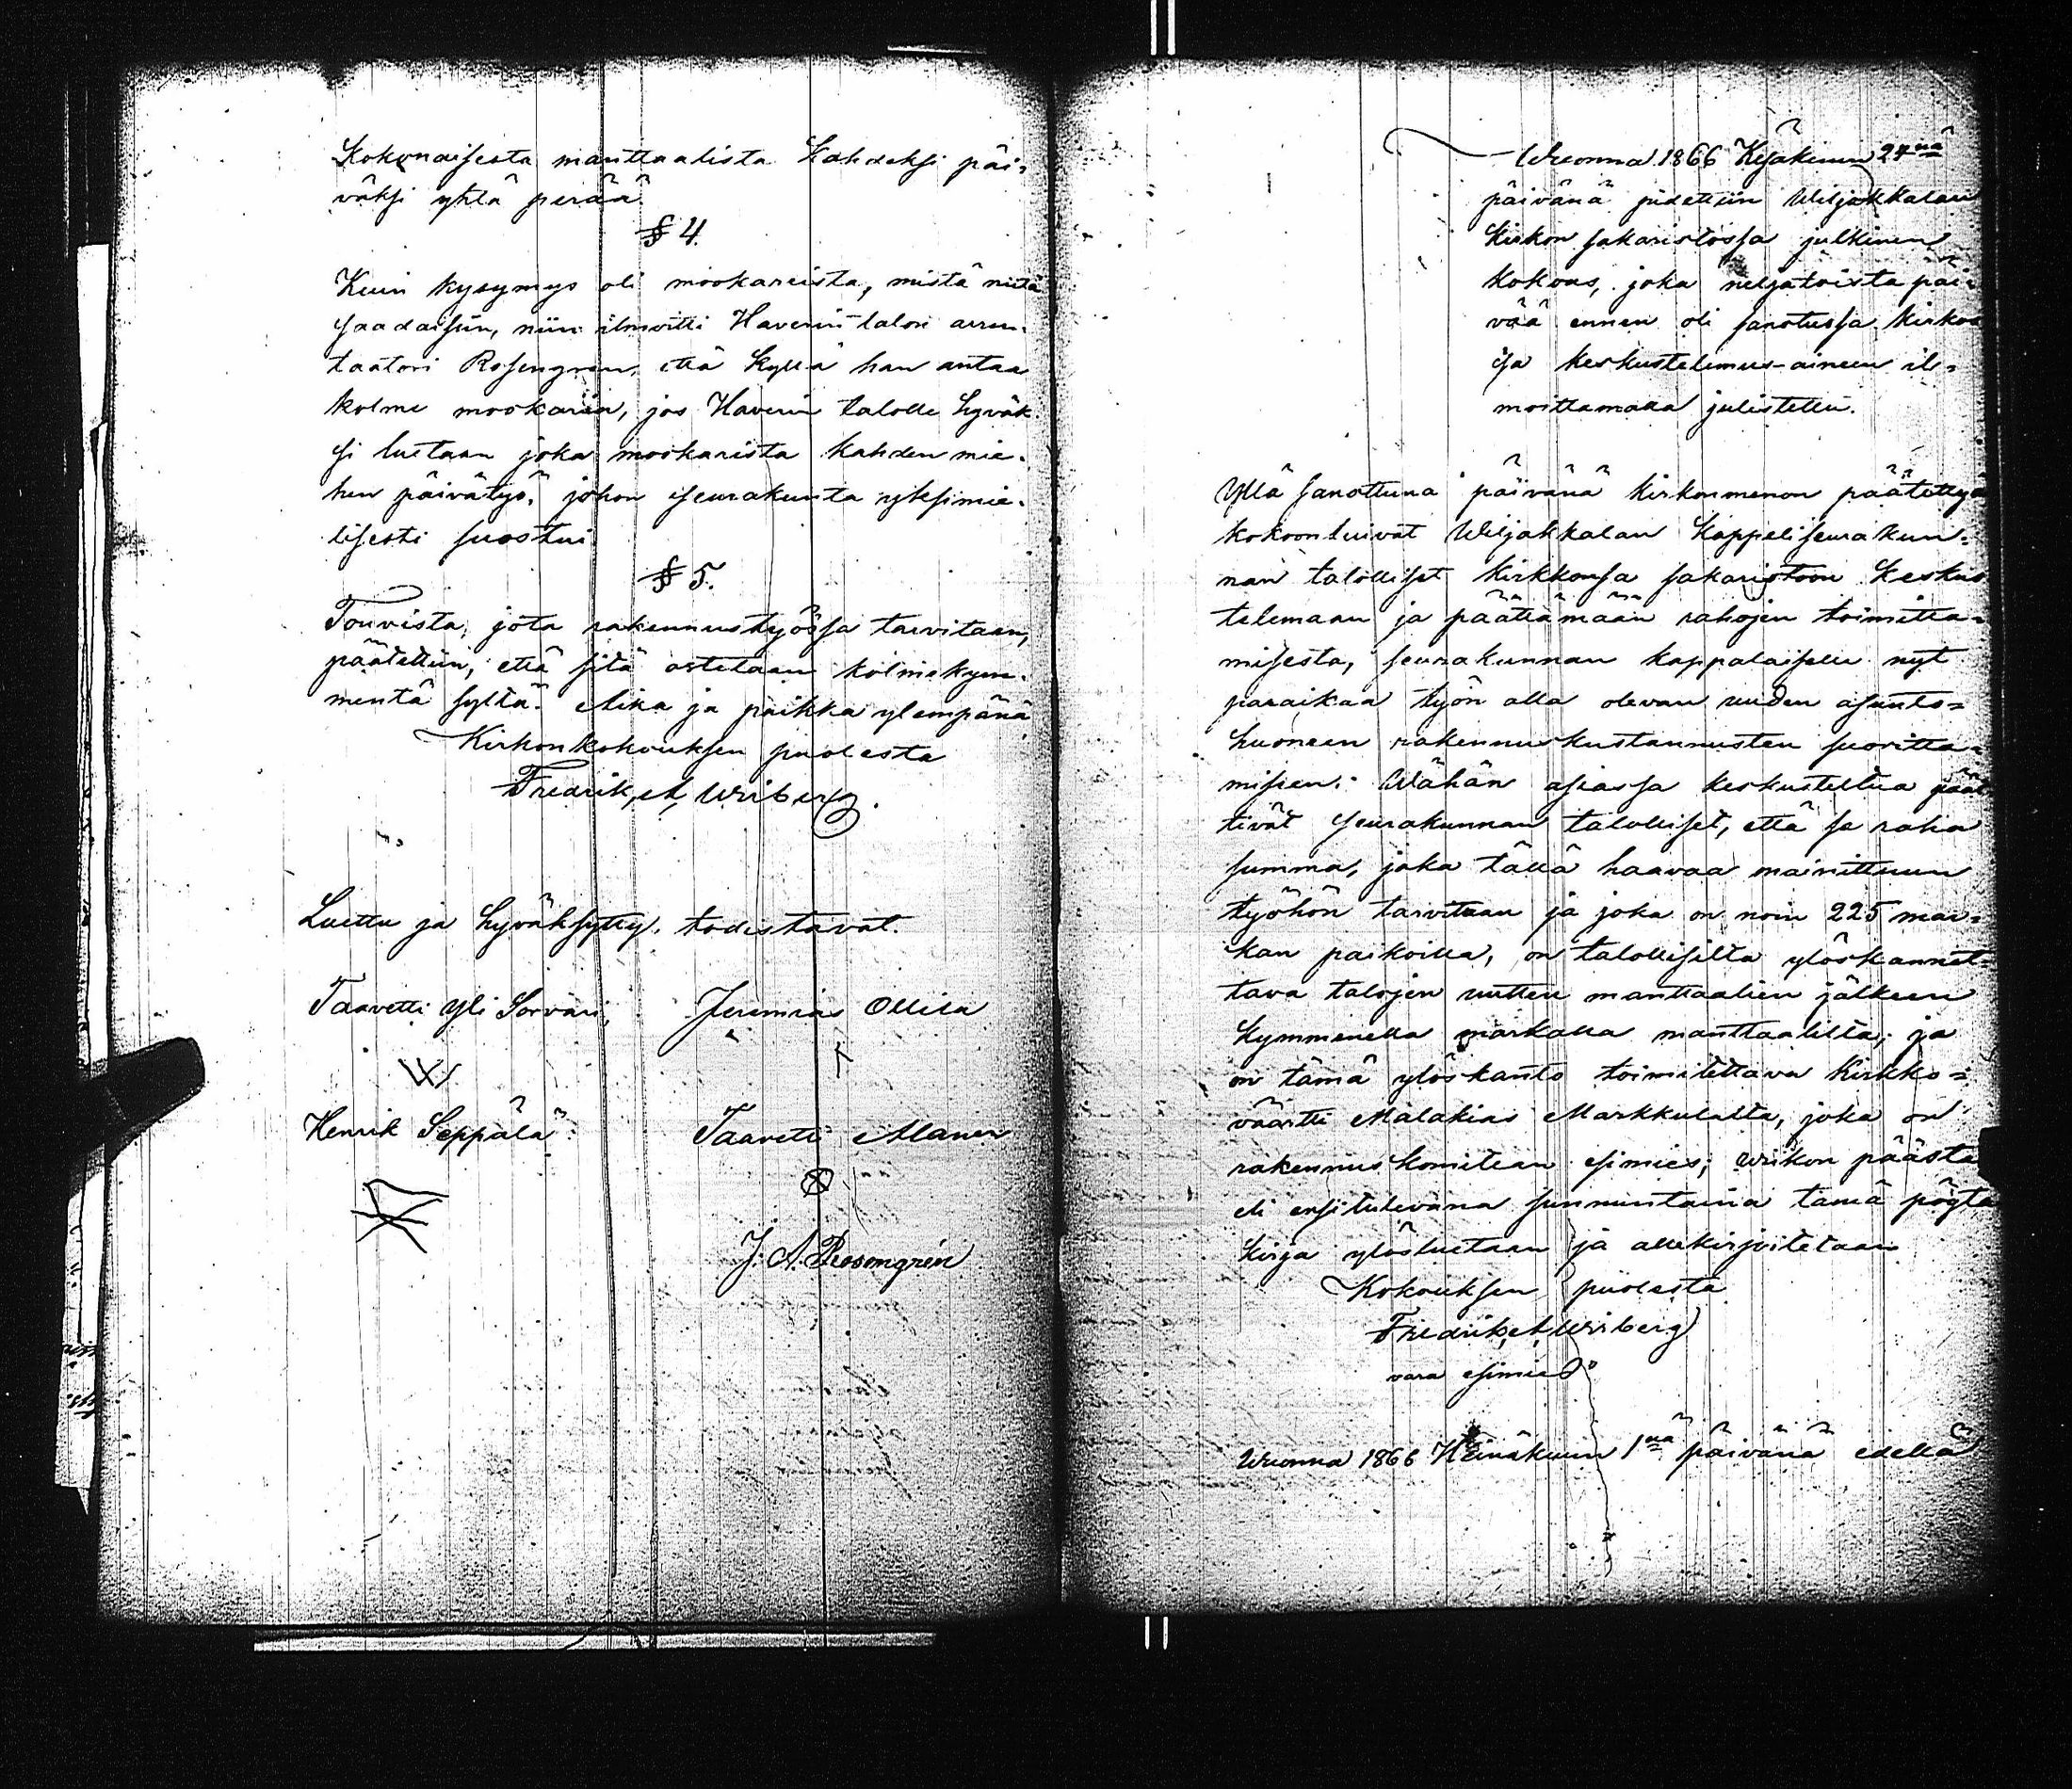 Kokonaisesta manttaalista kahdeksi päi-
väksi yhtä perää.
§ 4.
Kuin kysymys oli mookareista, mistä niitä
saadaisiin, niin ilmoitti Haverin talon arren-
taatori Rosengren, että kyllä han antaa
kolme mookaria, jos Haverin talolle hyväk-
si luetaan joka mookarista kahden mie-
hen päivätyö, johon seurakunta yksimie-
lisesti suostui
§ 5.
Touvista, jota rakennustyössä tarvitaan,
päätettiin, että sitä ostetaan kolmekym-
mentä syltä. Aika ja paikka ylempänä
Kirkonkokouksen puolesta
Fredrik A Wriberg.
Luettu ja hyväksytty, todistavat.
Taavetti Yli Sorvari, Jeremias Ollila
Henrik Seppälä Taavetti Maner
J. A. Rosengrén
Wuonna 1866 Kesäkuun 24nä
päivänä pidettiin Wiljakkalan
kirkon sakaristossa julkinen
kokous, joka neljätoista päi-
vää ennen oli sanotussa kirkos
sa keskustelemus-aineen il-
moittamalla julistettu.
Yllä sanottuna päivänä kirkonmenon päätettyä
kokoontuivat Wiljakkalan kappeliseurakun-
nan talolliset kirkkonsa sakaristoon keskus
telemaan ja päättämään rahojen toimitta-
misesta, seurakunnan kappalaiselle nyt
paraikaa työn alla olevan uuden asunto-
huoneen rakennuskustannusten suoritta-
miseen. Wähän asiassa keskusteltua päät
tivät seurakunnan talolliset, että se raha
summa, joka tällä haavaa mainittuun
työhön tarvitaan ja joka on noin 225 mar-
kan paikoilla, on talollisilta ylöskannet-
tava talojen uutten manttaalien jälkeen
kymmenellä markalla manttaalilta; ja
on tämä ylöskanto toimitettava kirkko-
väärtti Malakias Markkulalta, joka on
rakennuskomitean esimies; wiikon päästä
eli ensitulevana sunnuntaina tämä pöytä
kirja ylösluetaan ja allekirjoitetaan
Kokouksen puolesta
Fredrik A Wriberg
vara esimies
Wuonna 1866 Heinäkuun 1nä päivänä edellä